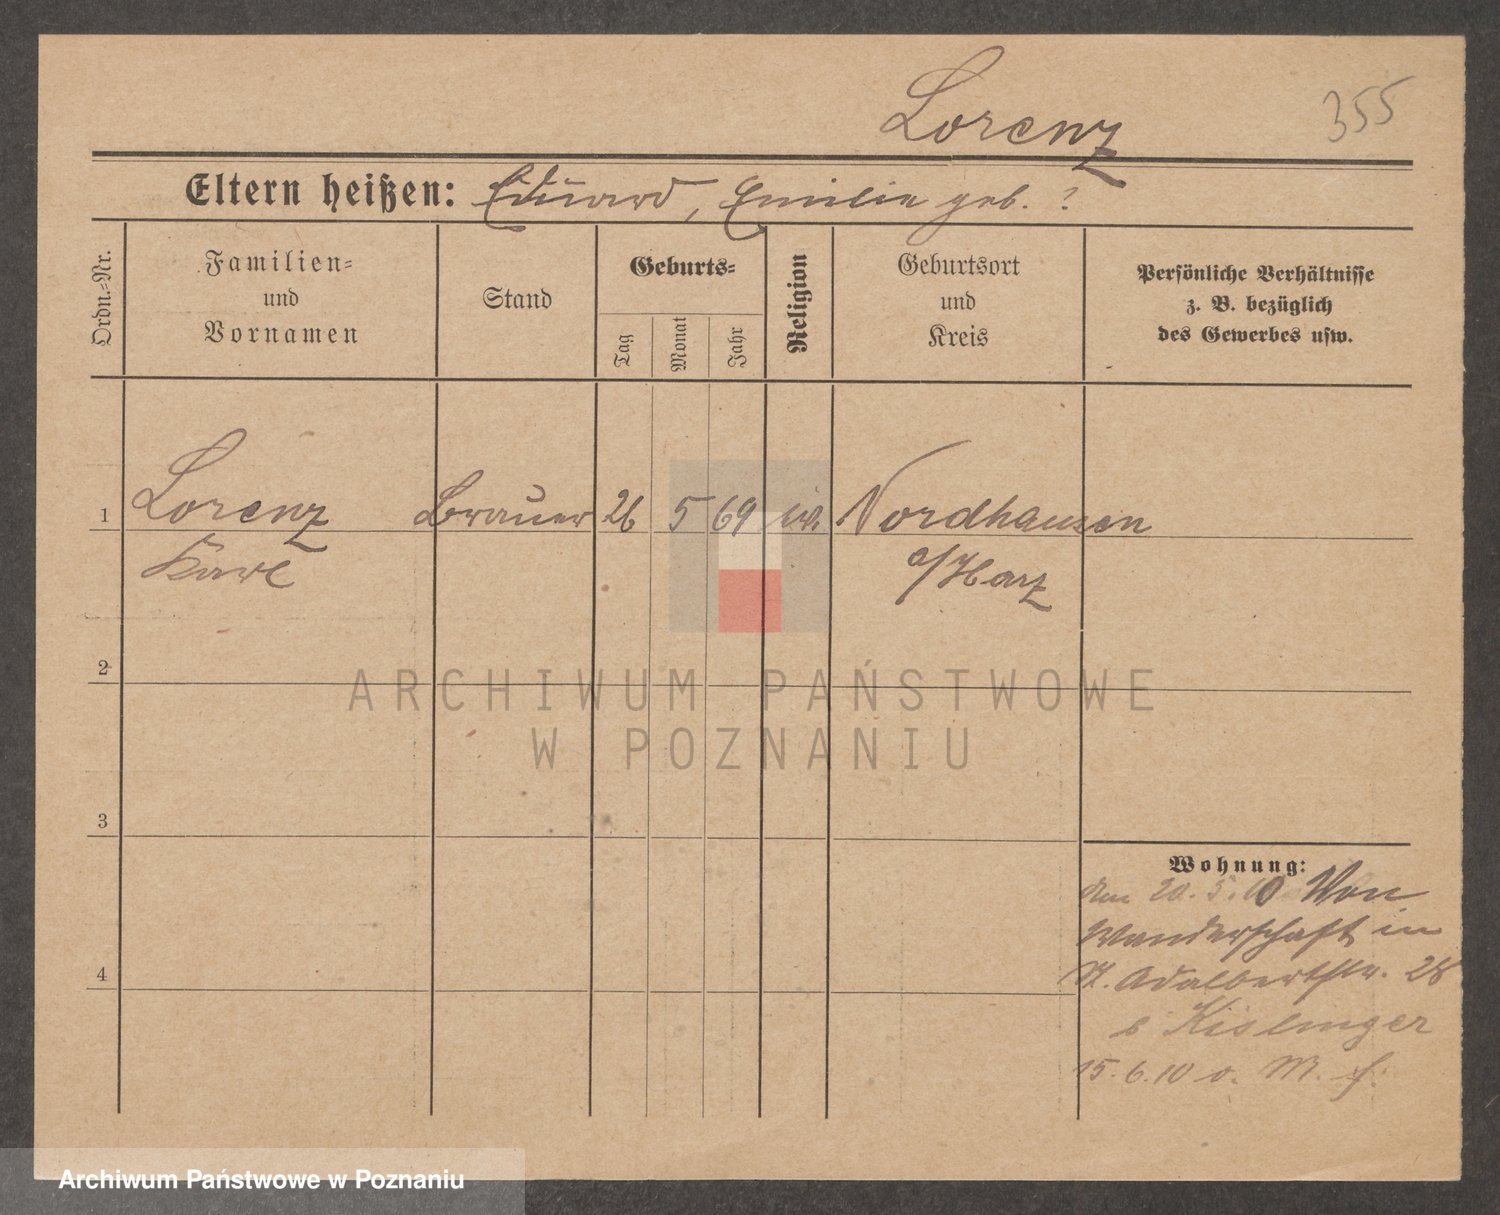 Lorenz
355
Eltern heißen: Eduard, Emilie geb. ?
Ordn.-Nr.
Familien-
und
Vornamen
Stand
Geburts-
Tag
Monat
Jahr
Religion
Geburtsort
und
Kreis
Persönliche Verhältnisse
z. B. bezüglich
des Gewerbes usw.
1
Lorenz
Karl
Brauer
26
5
69
Nordhausen
a/Harz
2
3
4
Wohnung:
Am 20. 5. 10 Von
Wanderschaft in
St. Adalbertstr. 28
b Kislinger
15. 6. 10 o.
ARCHIWUM PAŃSTWOWE
W POZNANIU
Archiwum Państwowe w Poznaniu